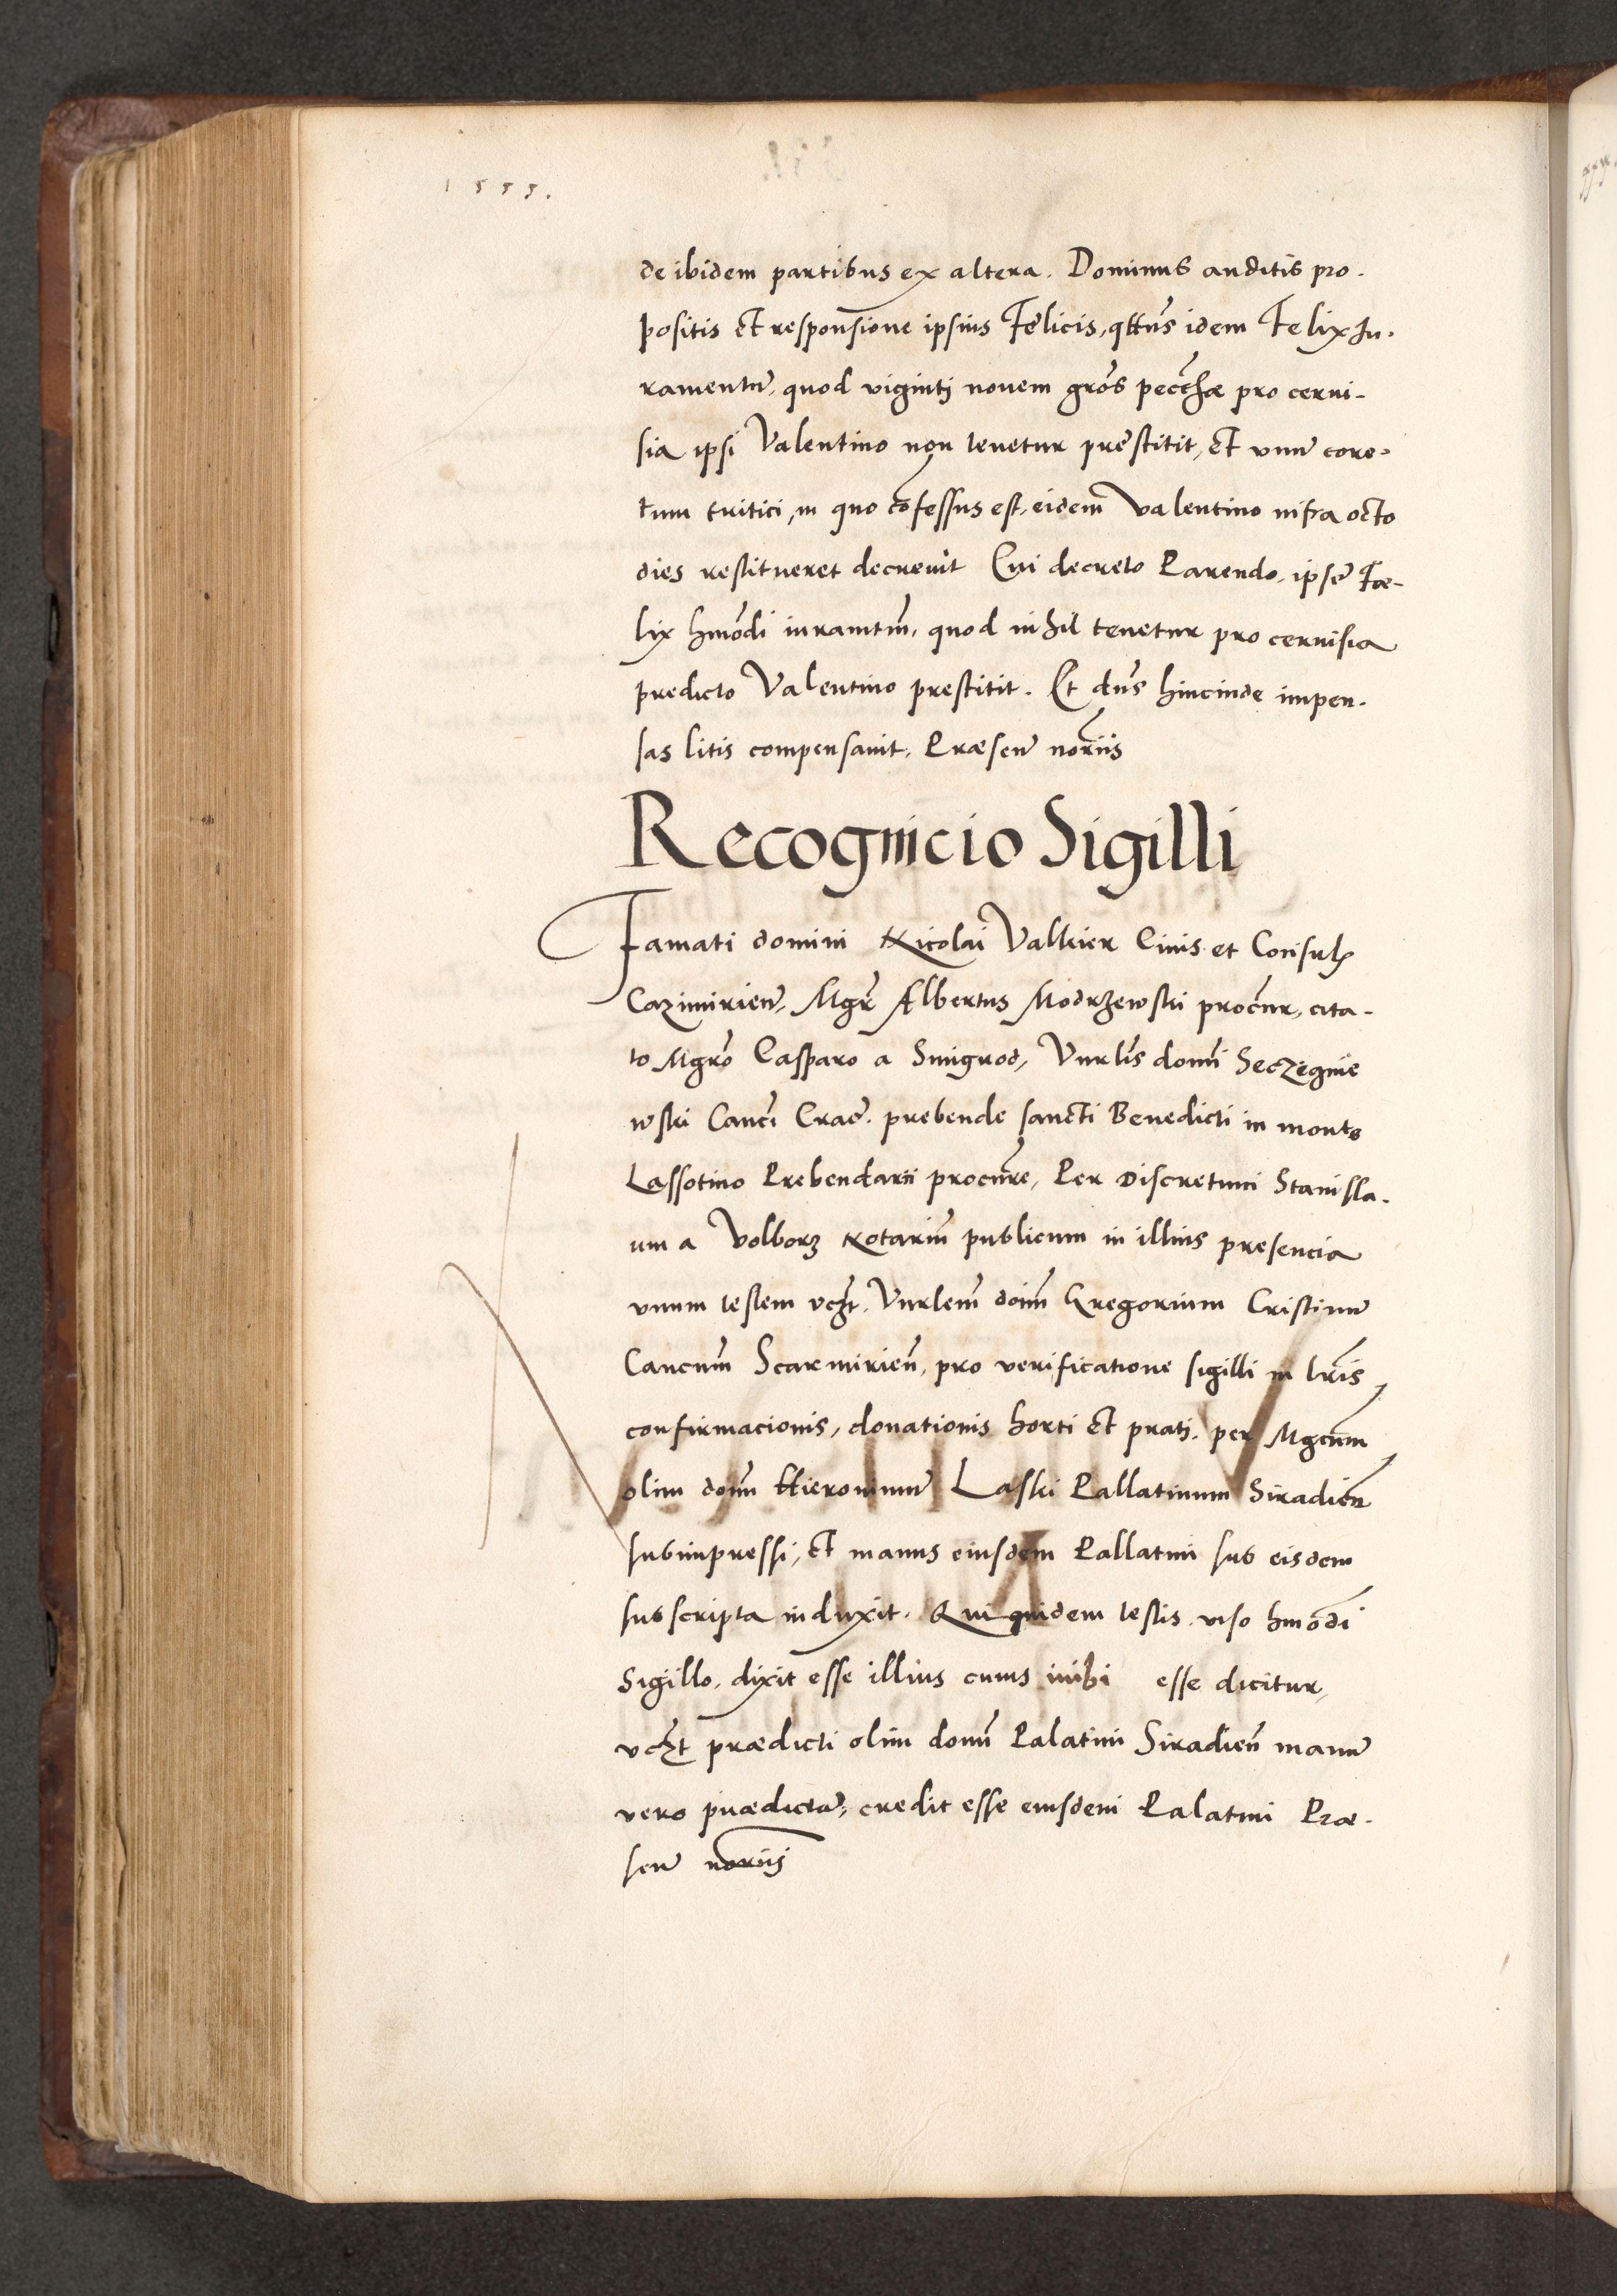 1555.
de ibidem partibus ex altera. Dominus auditis pro.
positis et responsione ipsius Felicis, qttus idem Felix Iu.
ramentũ, quod viginti novem gros pro cervi-
sia ipsi Valentino non tenetur prestitit, et vnũ core.
tum tritici, in quo cõfessus est, eidem Valentino infra octo
dies restitueret decrevit Cui decreto Parendo, ipse Fæ-
lix hmõdi iuramtm, quod nihil tenetur pro cervisia
predicto Valentino prestitit. Et dns hincinde impen.
sas litis compensavit. Præsen noriis
Recognicio Sigilli
Famati domini Nicolai Valkier Civis et Consulis
Cazimirien, Mgr Albertus Modrzewski procur, cita.
to Mgro Casparo a Smigrod, Vnrlis domi Seczignie
wski Canci Crac. prebende sancti Benedicti in monte
Lassotino Prebendarii procure, Per Discretum Stanisla.
um a Volborz Notarium publicum in illius presencia
vnum testem vczt. Vnrlem domm Gregorium Cristinũ
Cancum Scarmirien, pro verificatione sigilli in lris
confirmacionis, donationis horti et prati, per Mgcum
olim domm Hieronimum Laski Pallatinum Siradien
subimpressi, et manus eiusdem Pallatini sub eisdem
subscripta induxit. Qui quidem testis viso hmõdi
Sigillo, dixit esse illius cuius inibi esse dicitur,
vczt prædicti olim domni Palatini Siradien manũ
vero prædictã, credit esse eiusdem Palatini Præ.
sen noriis